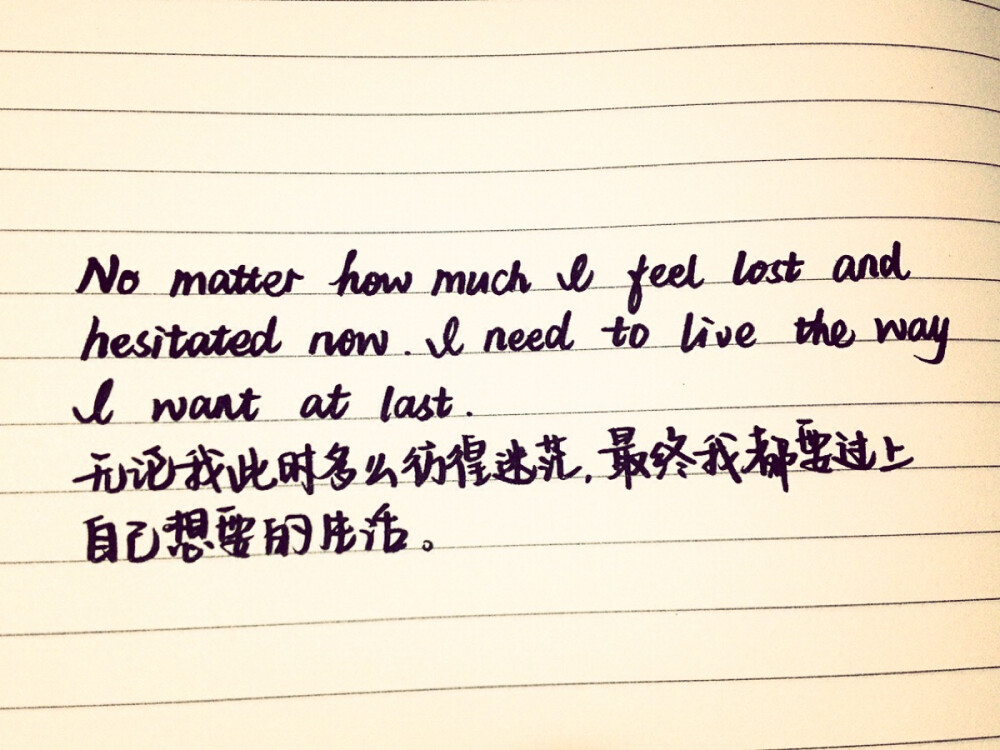 No matter how much I feel lost and
hesitated now. I need to live the way
I want at last.
无论我此时多么彷徨迷茫,最终我都要过上
自己想要的生活。